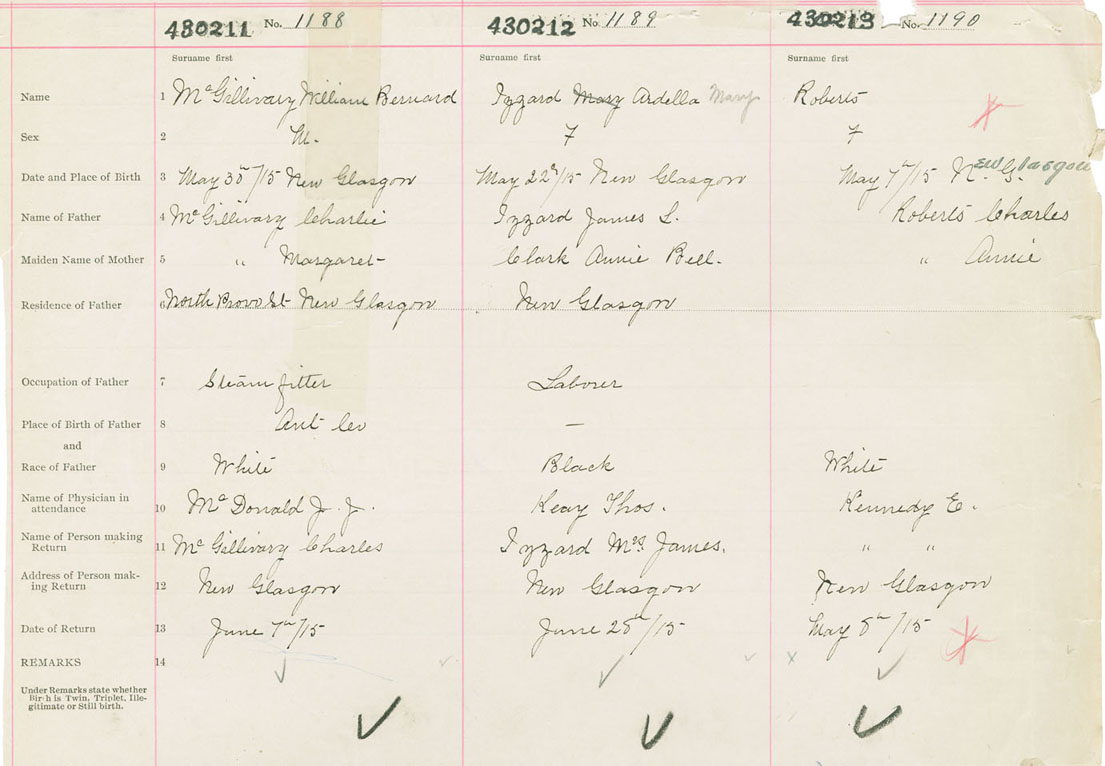 430211 No. 1188 430212 No 1189 430213 No. 1190
Surname first Surname first Surname first
Name 1 McGillivary William Bernard Izzard Mary Ardella Mary Roberts
Sex 2 M. F F
Date and Place of Birth 3 May 30th/15 New Glasgow May 22nd/15 New Glasgow May 7th/15 New Glasgow
Name of Father 4 McGillivary Charlie Izzard James L. Roberts Charles
Maiden Name of Mother 5 " Margaret Clark Annie Bell. " Annie
Residence of Father 6 North Provo St New Glasgow New Glasgow
Occupation of Father 7 Steam fitter Laborer
Place of Birth of Father 8 Ant Co —
and
Race of Father 9 White Black White
Name of Physician in
attendance 10 McDonald J. J. Keay Thos. Kennedy E.
Name of Person making
Return 11 McGillivary Charles Izzard Mrs. James. " "
Address of Person mak-
ing Return 12 New Glasgow New Glasgow New Glasgow
Date of Return 13 June 7th/15 June 28th/15 May 8th/15
REMARKS 14
Under Remarks state whether
Birth is Twin, Triplet, Ille-
gitimate or Still birth.